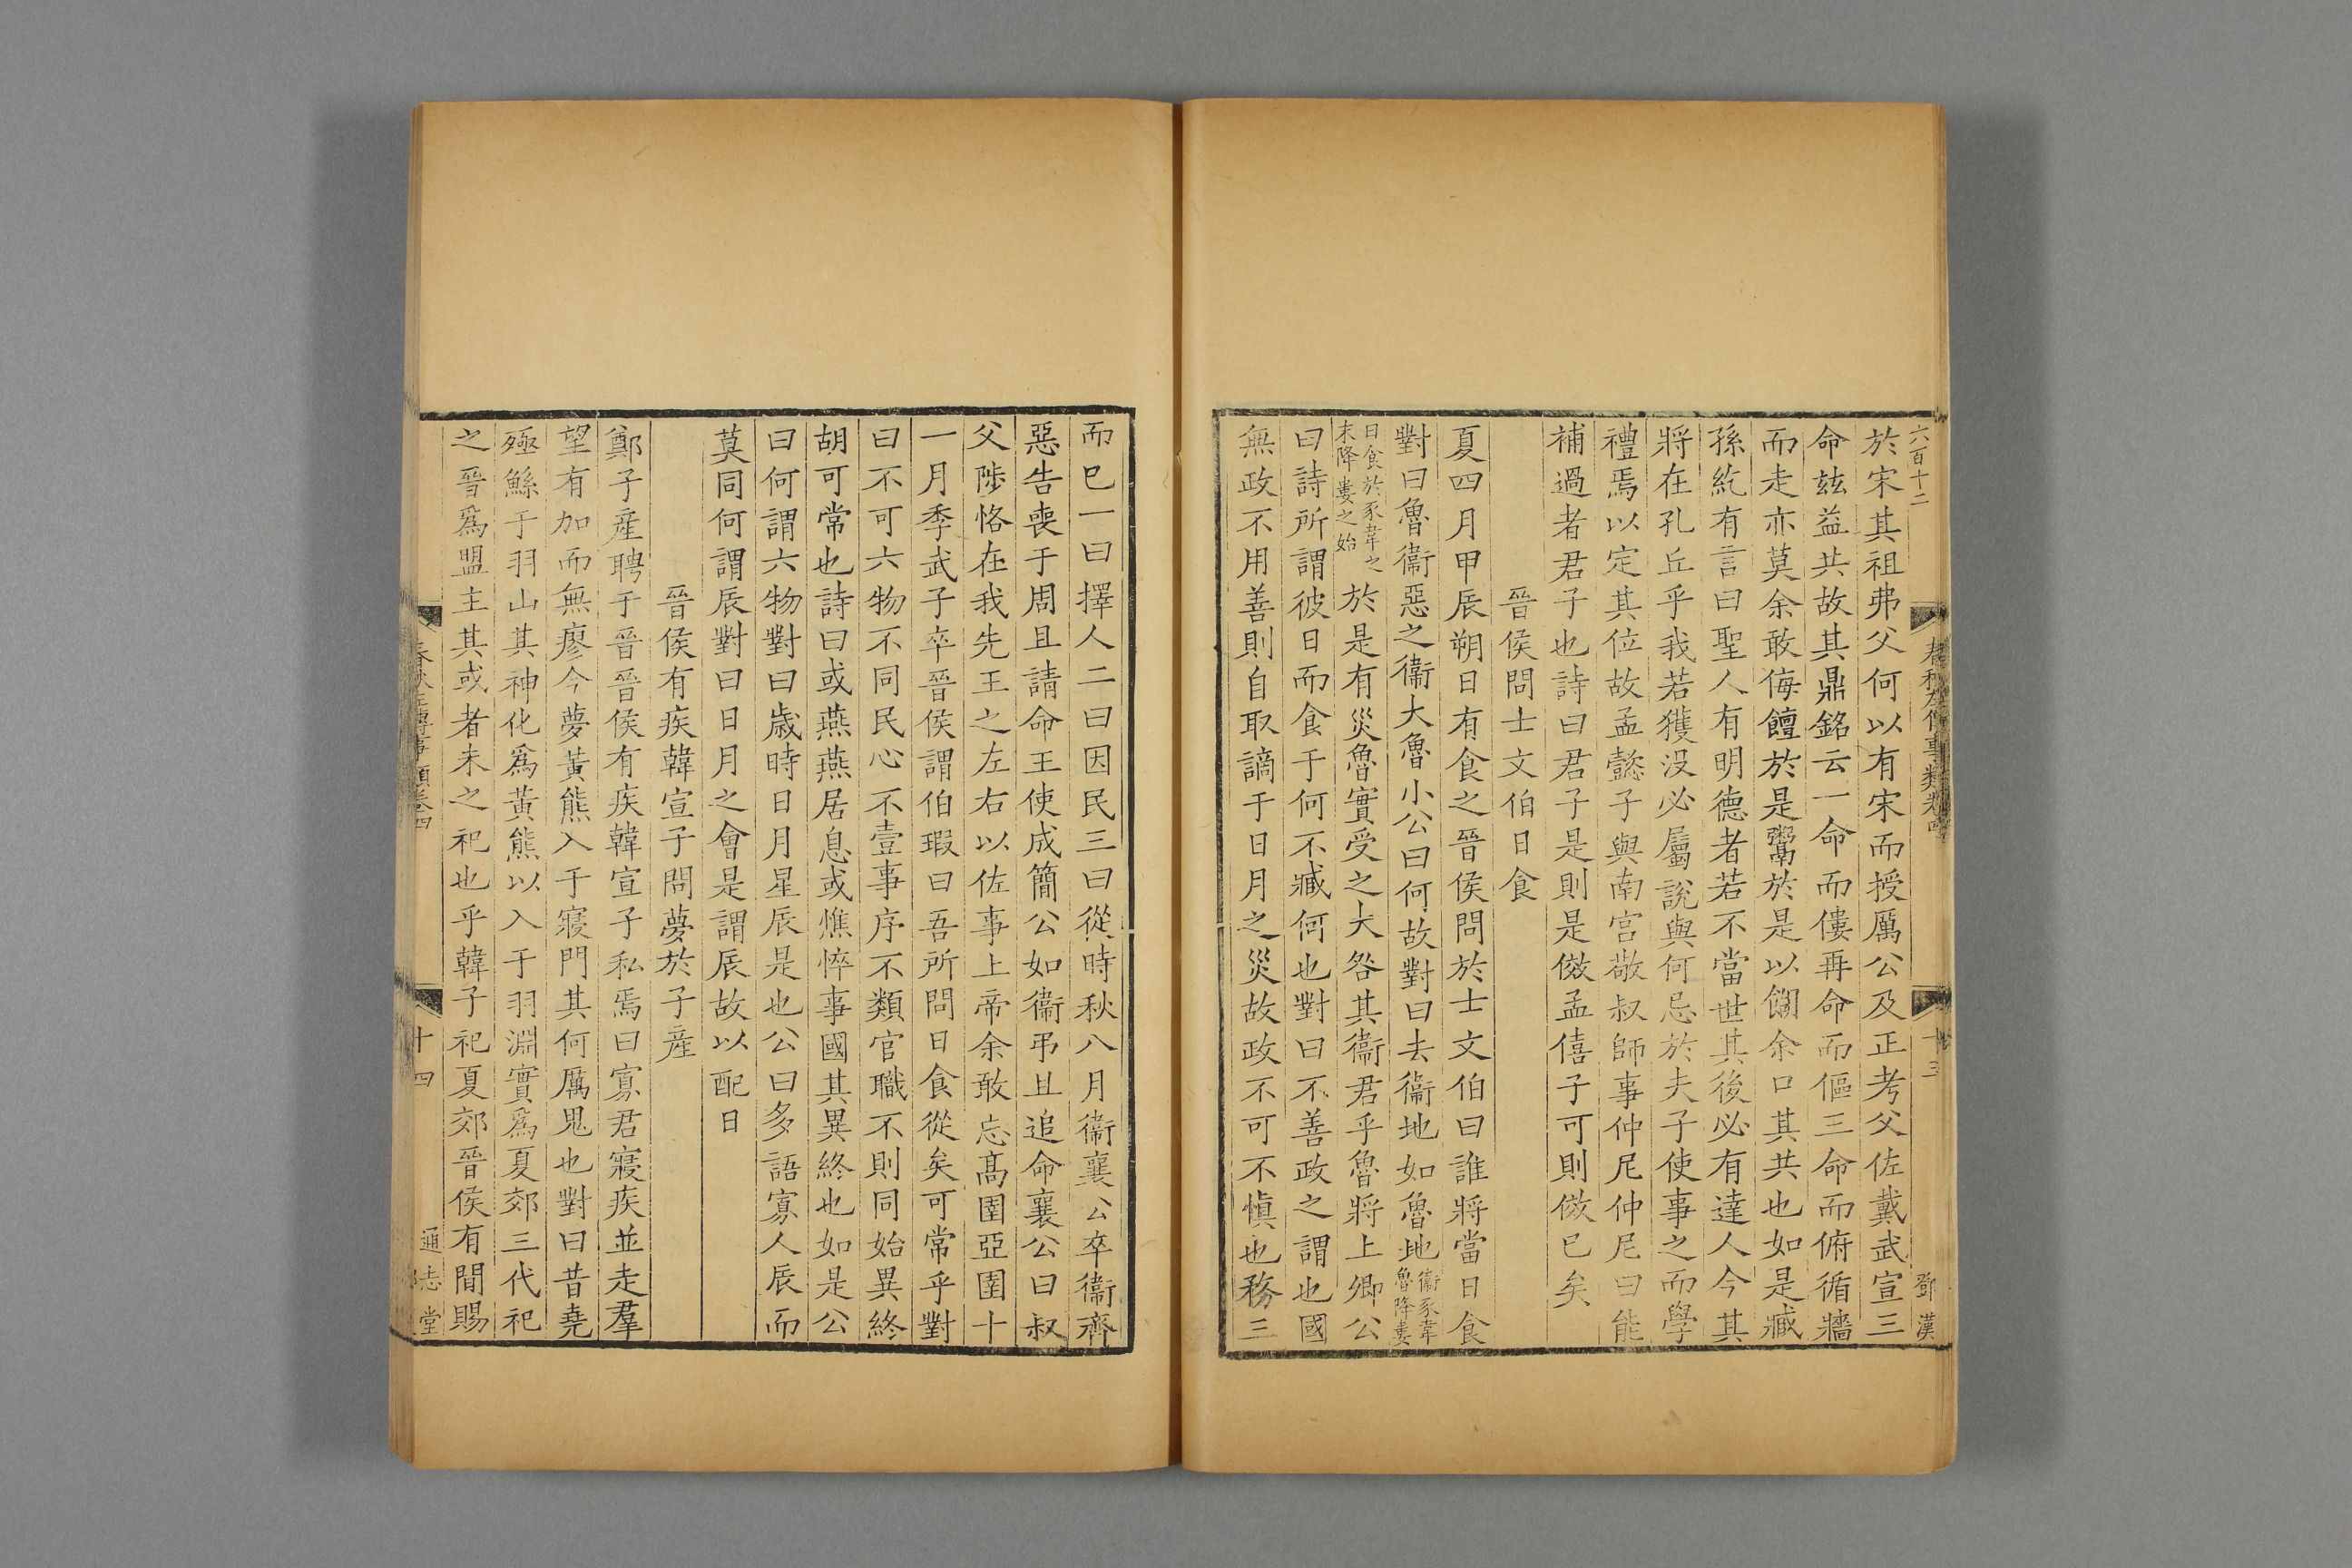 六百十二
春秋左傳事類卷四
十三
鄧漢
於宋其祖弗父何以有宋而授厲公及正考父佐戴武宣三
命玆益共故其鼎銘云一命而僂再命而傴三命而俯循牆
而走亦莫余敢侮饘於是鬻於是以餬余口其共也如是臧
孫紇有言曰聖人有明德者若不當世其後必有達人今其
將在孔丘乎我若獲没必屬說與何忌於夫子使事之而學
禮焉以定其位故孟懿子與南宮敬叔師事仲尼仲尼曰能
補過者君子也詩曰君子是則是傚孟僖子可則傚已矣
晉侯問士文伯日食
夏四月甲辰朔日有食之晉侯問於士文伯曰誰將當日食
對曰魯衞惡之衞大魯小公曰何故對曰去衞地如魯地衞豕韋魯降婁
日食於豕韋之末降婁之始於是有災魯實受之大咎其衞君乎魯將上卿公
曰詩所謂彼日而食于何不臧何也對曰不善政之謂也國
無政不用善則自取謫于日月之災故政不可不慎也務三
而已一曰擇人二曰因民三曰從時秋八月衞襄公卒衞齊
惡告喪于周且請命王使成簡公如衞弔且追命襄公曰叔
父陟恪在我先王之左右以佐事上帝余敢忘髙圉亞圉十
一月季武子卒晉侯謂伯瑕曰吾所問日食從矣可常乎對
曰不可六物不同民心不壹事序不類官職不則同始異終
胡可常也詩曰或燕燕居息或憔悴事國其異終也如是公
曰何謂六物對曰歲時日月星辰是也公曰多語寡人辰而
莫同何謂辰對曰日月之會是謂辰故以配日
晉侯有疾韓宣子問夢於子産
鄭子産聘于晉晉侯有疾韓宣子私焉曰寡君寢疾並走羣
望有加而無瘳今夢黃熊入于寢門其何厲鬼也對曰昔堯
殛鯀于羽山其神化爲黃熊以入于羽淵實爲夏郊三代祀
之晉爲盟主其或者未之祀也乎韓子祀夏郊晉侯有間賜
春秋左傳事類卷四
十四
通志堂